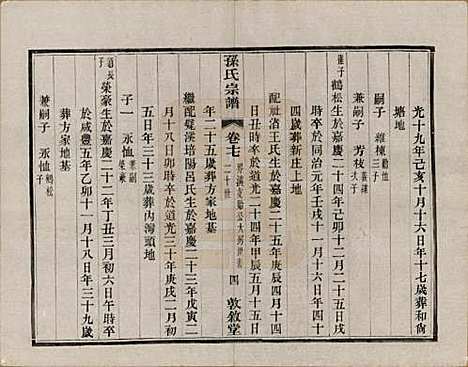 光十九年己亥十月十六日年十七歲葬和尚
塘地
嗣子 維棟 勸他子
兼嗣子 芳枝 義謙次子
崔子 鶴松生於嘉慶二十四年己卯十二月二十五日戌
時卒於同治元年壬戌十一月十五日午時年四十
四歲葬新庄上地
配社渚王氏生於嘉慶二十五年庚辰四月十四
日丑時卒於道光二十四年甲辰五月十一日酉時
孫氏宗譜
卷七
二十世
四
敦敘堂
年二十五歲葬方家地基
繼配凝渓培陽呂氏生於嘉慶二十三年戊寅二
月十八日卯時卒於道光三十年庚戌二月初
五日年三十三歲葬內灣頭地
子一 永恤 兼嗣榮豪
道長子 榮豪生於嘉慶二十二年丁丑三月初六日午時卒
於咸豐五年乙卯十一月十八日年三十九歲
葬方家地基
兼嗣子 永恤 鶴松子